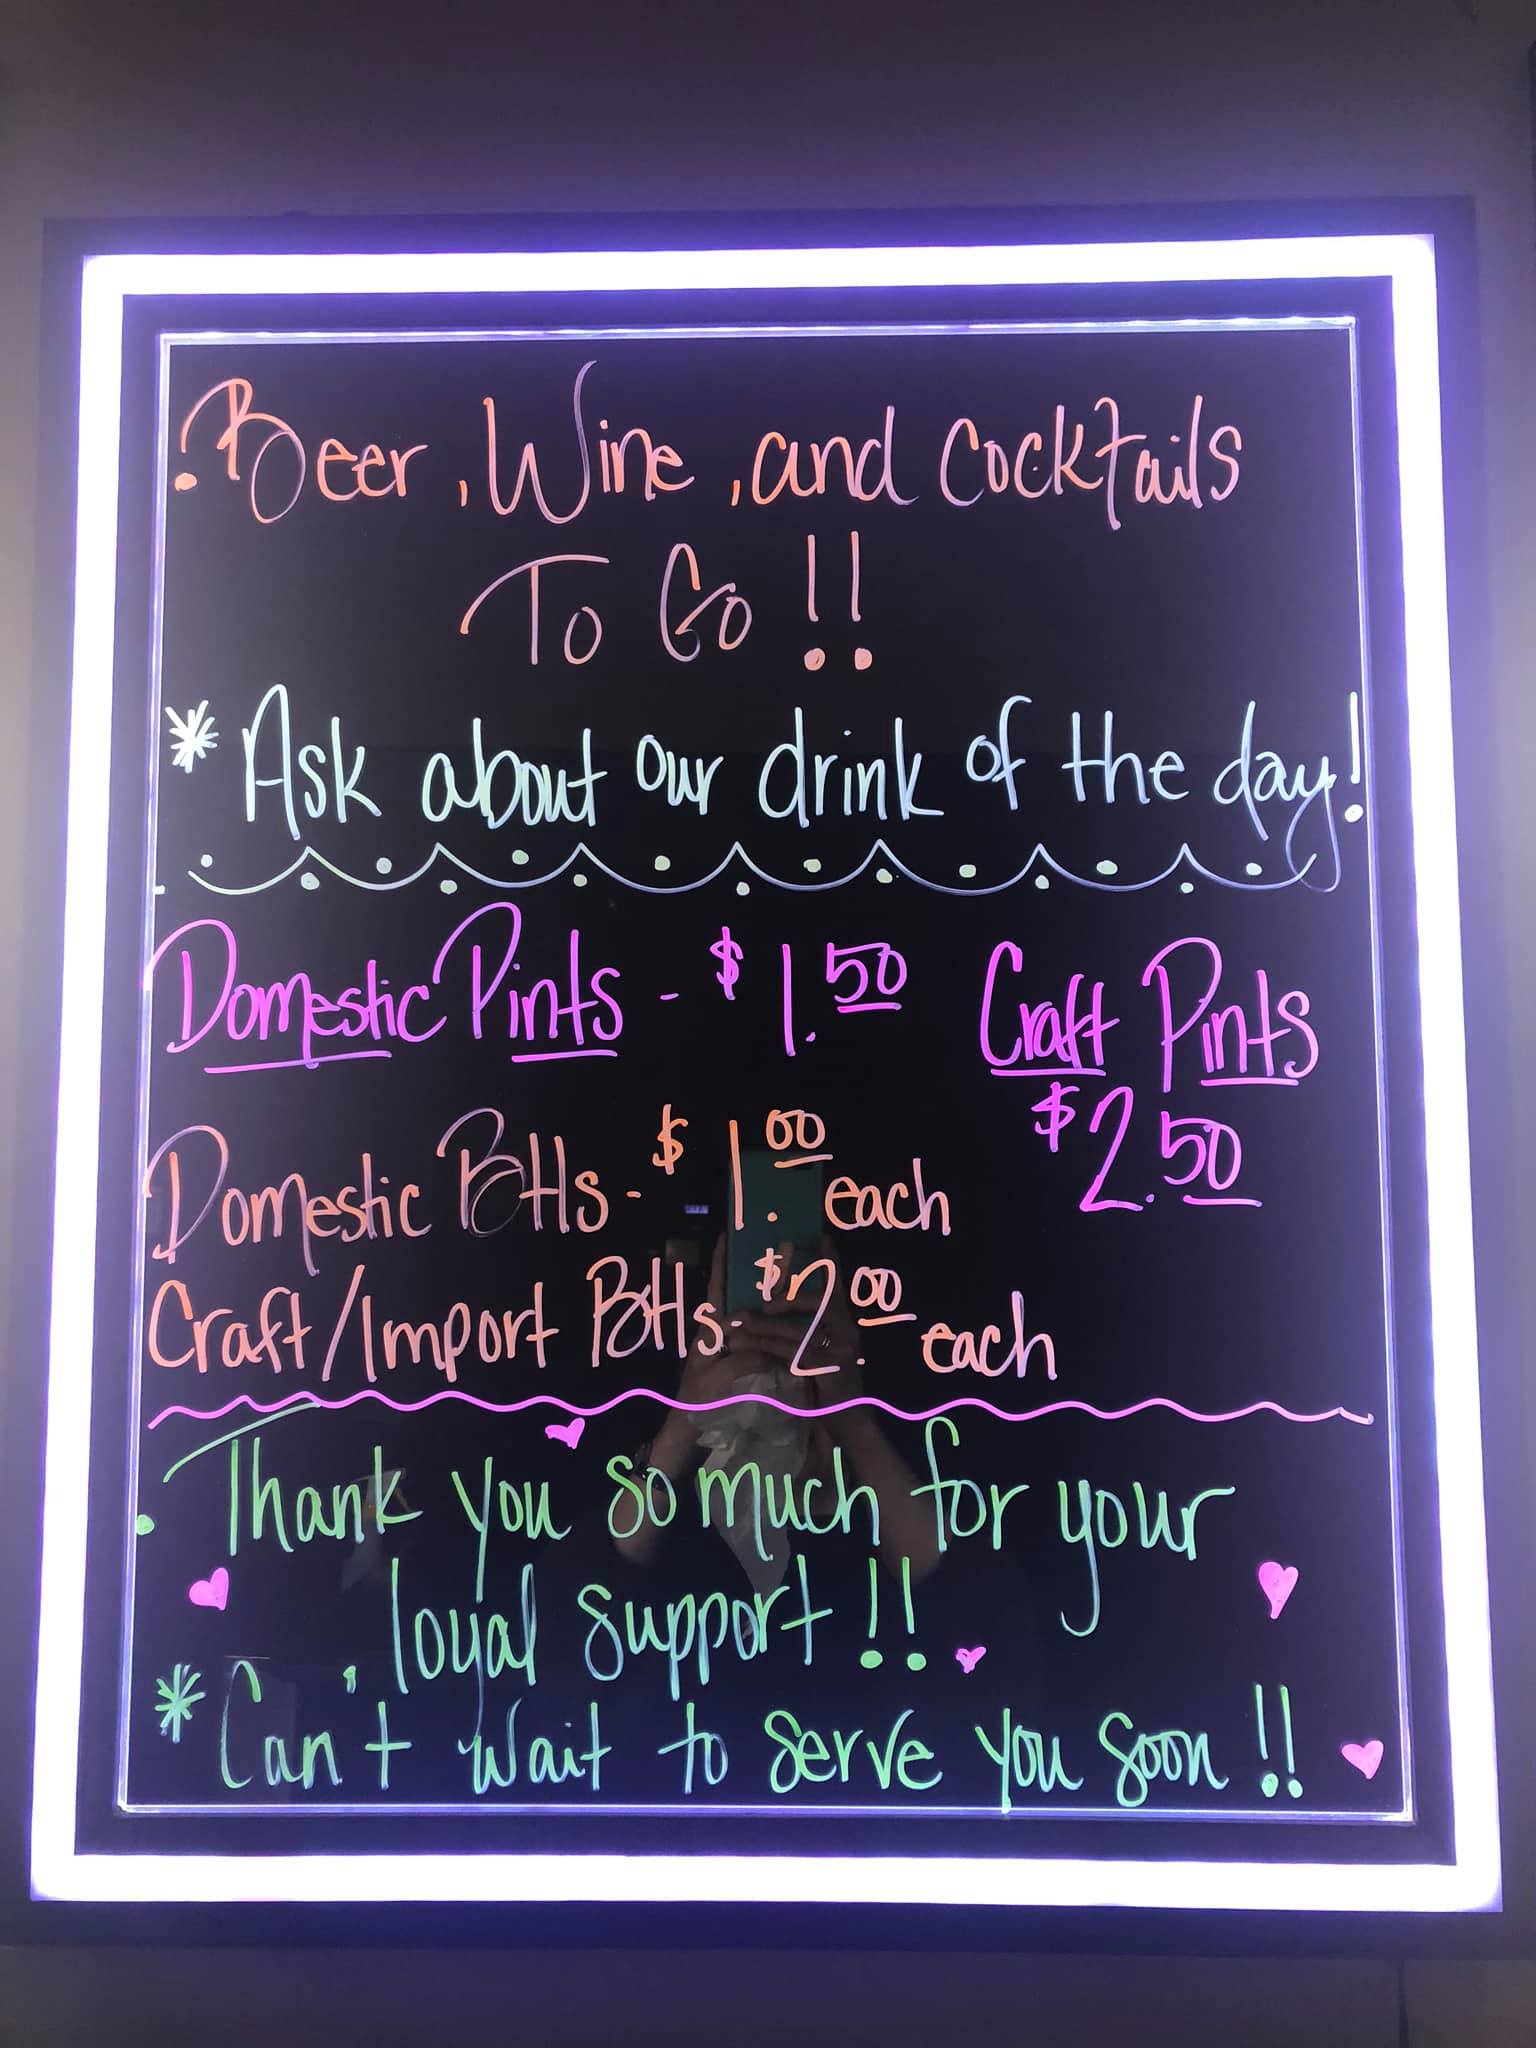 Beer, Wine, and Cocktails
To Go!!
* Ask about our drink of the day!
Domestic Pints - $1.50
Craft Pints
$2.50
Domestic Btls - $1.00 each
Craft/Import Btls - $2.00 each
Thank you so much for your
loyal support!!
* Can't wait to serve you soon!!